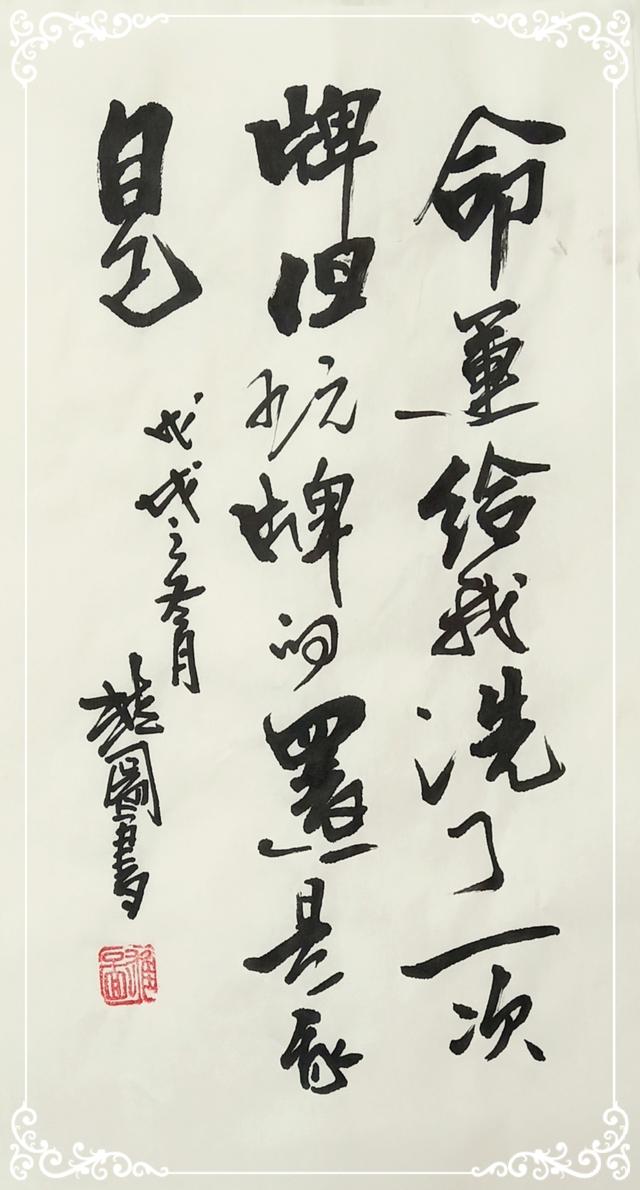 命運给我洗了一次
牌但玩牌的還是我
自己
戊戌之冬月
雄圖書
雄圖